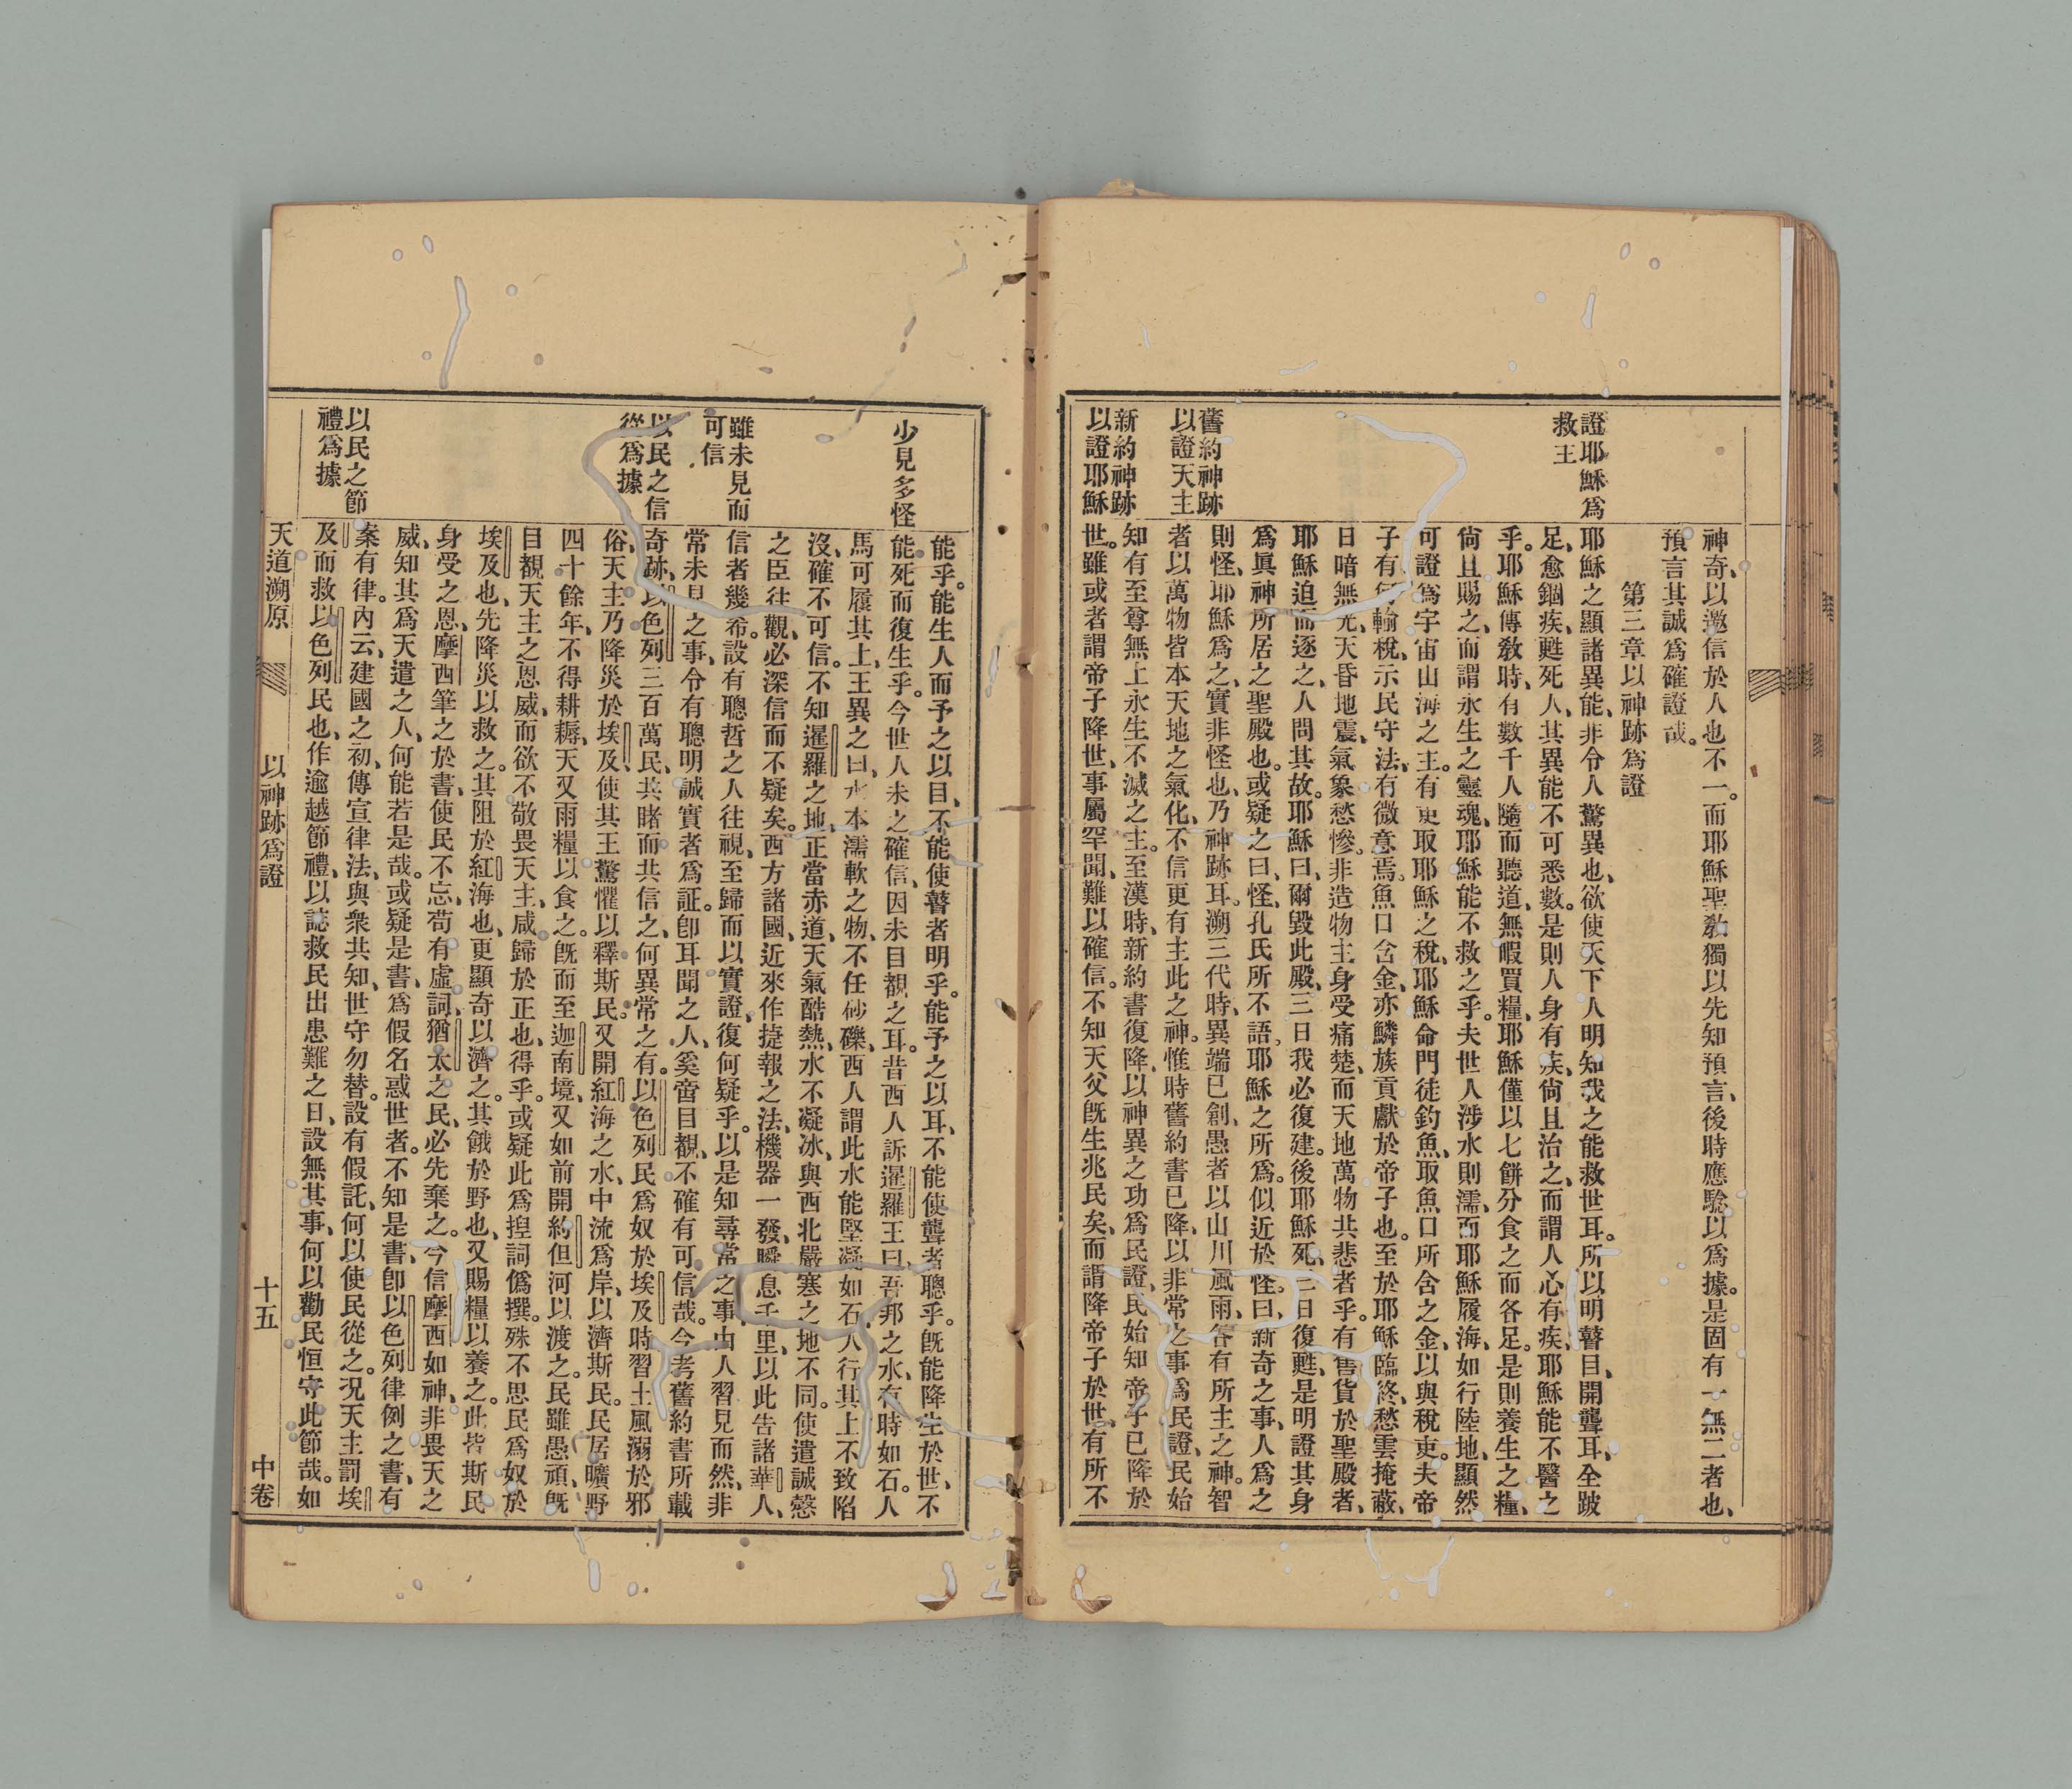 神奇、以邀信於人也不一。而耶穌聖教獨以先知預言、後時應驗以爲據。是固有一無二者也、
預言其誠爲確證哉。
第三章以神跡爲證
證耶穌爲
救王
耶穌之顯諸異能、非令人驚異也、欲使天下人明知我之能救世耳。所以明瞽目、開聾耳、全跛
足、愈錮疾、甦死人、其異能不可悉數。是則人身有疾、尙且治之、而謂人心有疾、耶穌能不醫之
乎。耶穌傳敎時、有數千人隨而聽道、無暇買糧、耶穌僅以七餅分食之而各足。是則養生之糧、
尙且賜之、而謂永生之靈魂、耶穌能不救之乎。夫世人涉水則濡、而耶穌履海、如行陸地、顯然
可證爲宇宙山海之主。有吏取耶穌之稅、耶穌命門徒釣魚、取魚口所含之金、以與稅吏。夫帝
子有何輸稅、示民守法、有微意焉。魚口含金、亦鱗族貢獻於帝子也。至於耶穌臨終、愁雲掩蔽、
日暗無光、天昏地震、氣象愁慘。非造物主身受痛楚、而天地萬物共悲者乎。有售貨於聖殿者、
耶穌迫而逐之、人問其故。耶穌曰、爾毀此殿、三日我必復建。後耶穌死、三日復甦、是明證其身
爲眞神所居之聖殿也。或疑之曰、怪、孔氏所不語、耶穌之所爲。似近於怪。曰、新奇之事、人爲之
則怪、耶穌爲之、實非怪也、乃神跡耳。溯三代時、異端已創、愚者以山川風雨、各有所主之神。智
舊約神跡
以證天主
者以萬物皆本天地之氣化、不信更有主此之神。惟時舊約書已降、以非常之事爲民證、民始
知有至尊無上永生不滅之主。至漢時、新約書復降、以神異之功爲民證、民始知帝子已降於
新約神跡
以證耶穌
世。雖或者謂帝子降世、事屬罕聞、難以確信。不知天父旣生兆民矣、而謂降帝子於世、有所不
能乎。能生人而予之以目、不能使瞽者明乎。能予之以耳、不能使聾者聰乎。旣能降生於世、不
少見多怪
能死而復生乎。今世人未之確信、因未目覩之耳。昔西人訴暹羅王曰、吾邦之水、有時如石。人
馬可履其上、王異之曰、水本濡軟之物、不任砂礫、西人謂此水能堅凝如石、人行其上不致陷
沒、確不可信。不知暹羅之地、正當赤道、天氣酷熱、水不凝冰、與西北嚴寒之地不同。使遣誠慤
之臣往觀、必深信而不疑矣。西方諸國、近來作捷報之法、機器一發、瞬息千里、以此告諸華人、
雖未見而
可信
信者幾希。設有聰哲之人往視、至歸而以實證、復何疑乎。以是知尋常之事、由人習見而然、非
常未見之事、令有聰明誠實者爲証。卽耳聞之人、奚啻目覩、不確有可信哉。今考舊約書所載
以民之信
從爲據
奇跡、以色列三百萬民、共睹而共信之、何異常之有。以色列民爲奴於埃及時、習土風、溺於邪
俗、天主乃降災於埃及、使其王驚懼以釋斯民。又開紅海之水、中流爲岸、以濟斯民。民居曠野
四十餘年、不得耕耨、天又雨糧以食之。旣而至迦南境、又如前開約但河以渡之。民雖愚頑、旣
目覩天主之恩威、而欲不敬畏天主、咸歸於正也、得乎。或疑此爲揑詞僞撰。殊不思民爲奴於
埃及也、先降災以救之。其阻於紅海也、更顯奇以濟之。其餓於野也、又賜糧以養之。此皆斯民
身受之恩、摩西筆之於書、使民不忘、苟有虛詞、猶太之民、必先棄之。今信摩西如神、非畏天之
威、知其爲天遣之人、何能若是哉。或疑是書、爲假名惑世者。不知是書、卽以色列律例之書、有
案有律。內云、建國之初、傳宣律法、與衆共知、世守勿替。設有假託、何以使民從之。况天主罰埃
以民之節
禮爲據
及而救以色列民也、作逾越節禮、以誌救民出患難之日、設無其事、何以勸民恒守此節哉。如
天道溯原　以神跡爲證　十五　中卷